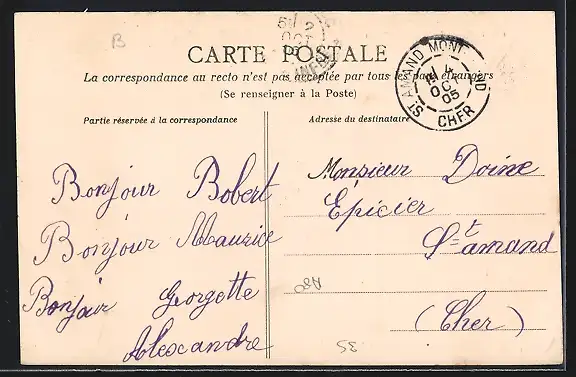 B
CARTE POSTALE
La correspondance au recto n'est pas acceptée par tous les pays étrangers
(Se renseigner à la Poste)
ST AMAND MONT
4
OCT
05
CHER
Partie réservée à la correspondance
Bonjour Bobert
Bonjour Maurice
Bonjour Georgette
Alexandre
Adresse du destinataire
Monsieur Doine
Epicier
St= amand
(Cher)
35